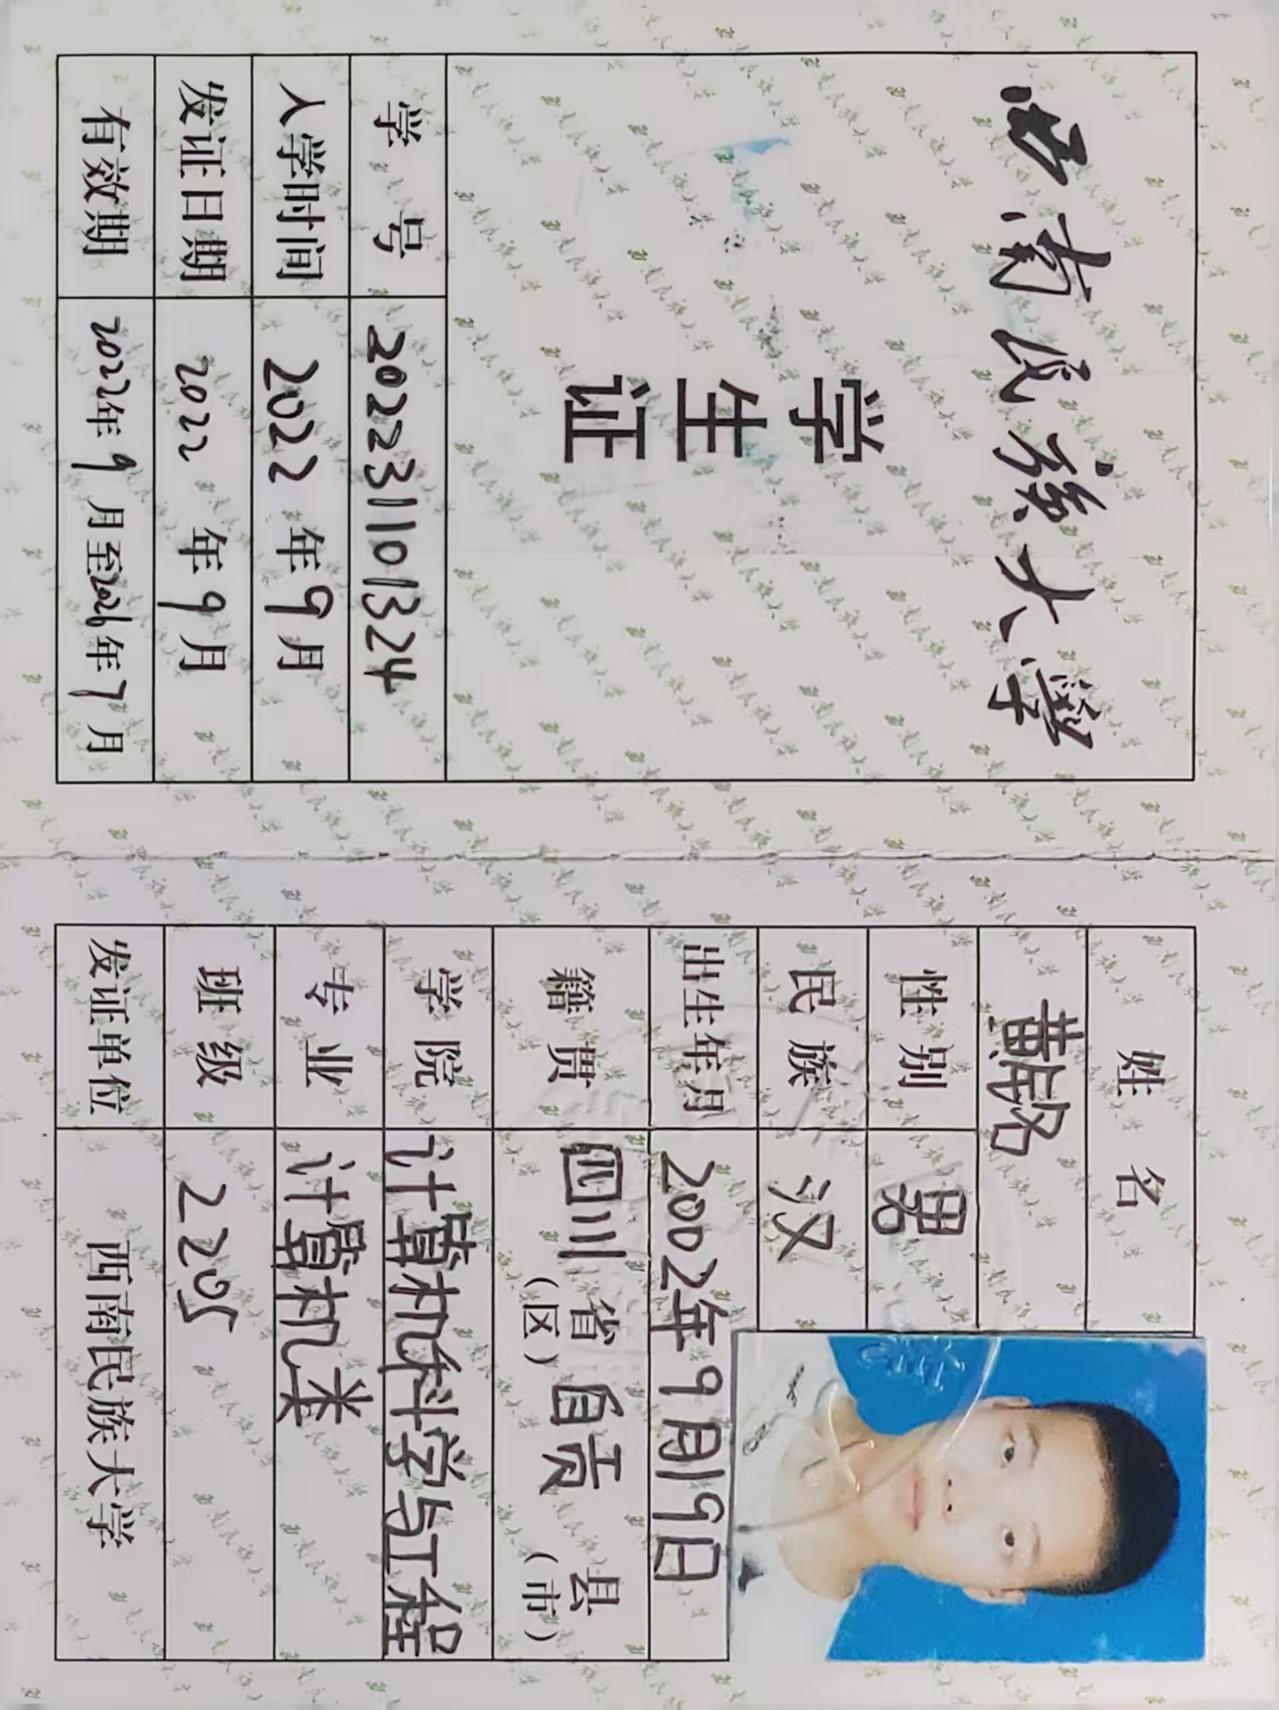 西南民族大学
学生证
学号 202231101324
入学时间 2022年9月
发证日期 2022年9月
有效期 2022年9月至2026年7月
姓名
黄铭
性别 男
民族 汉
出生年月 2002年9月19日
籍贯 四川省(区)自贡县(市)
学院 计算机科学与工程
专业 计算机类
班级 2205
发证单位 西南民族大学